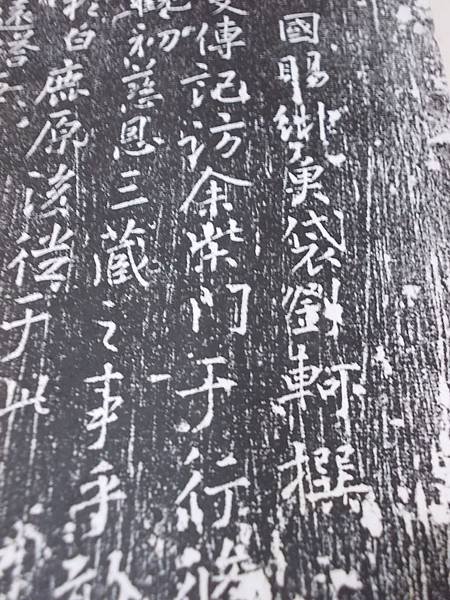 國賜緋魚袋劉軻撰
傳記訪余柴門于行脩
觀初慈恩三藏之事乎
於白鹿原後徙于此